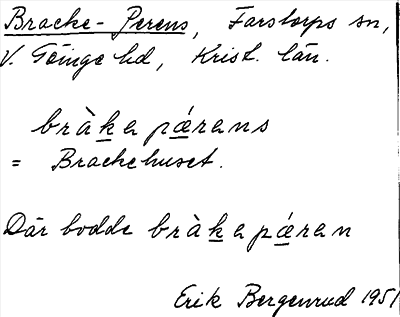 Bracke-Perens, Farstorps sn,
V. Göinge hd, Krist. län.
bràkapǽrans
= Brackehuset.
Där bodde bràkapǽran
Erik Bergenrud 1951